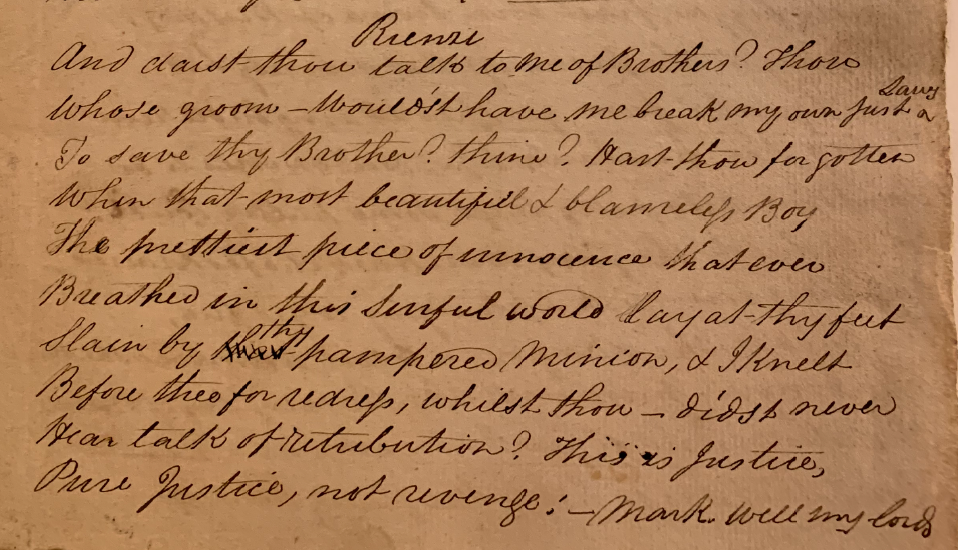 Rienzi
And darst thou talk to me of Brothers? Thou
Whose groom – Would'st have me break my own just Laws
To save thy Brother? thine? Hast thou forgotten
When that most beautiful & blameless Boy
The prettiest piece of innocence that ever
Breathed in this sinful world lay at thy feet
Slain by thy pampered Minion, & I Knelt
Before thee for redress, whilst thou – didst never
Hear talk of retribution? This is Justice,
Pure Justice, not revenge! – Mark well my lords